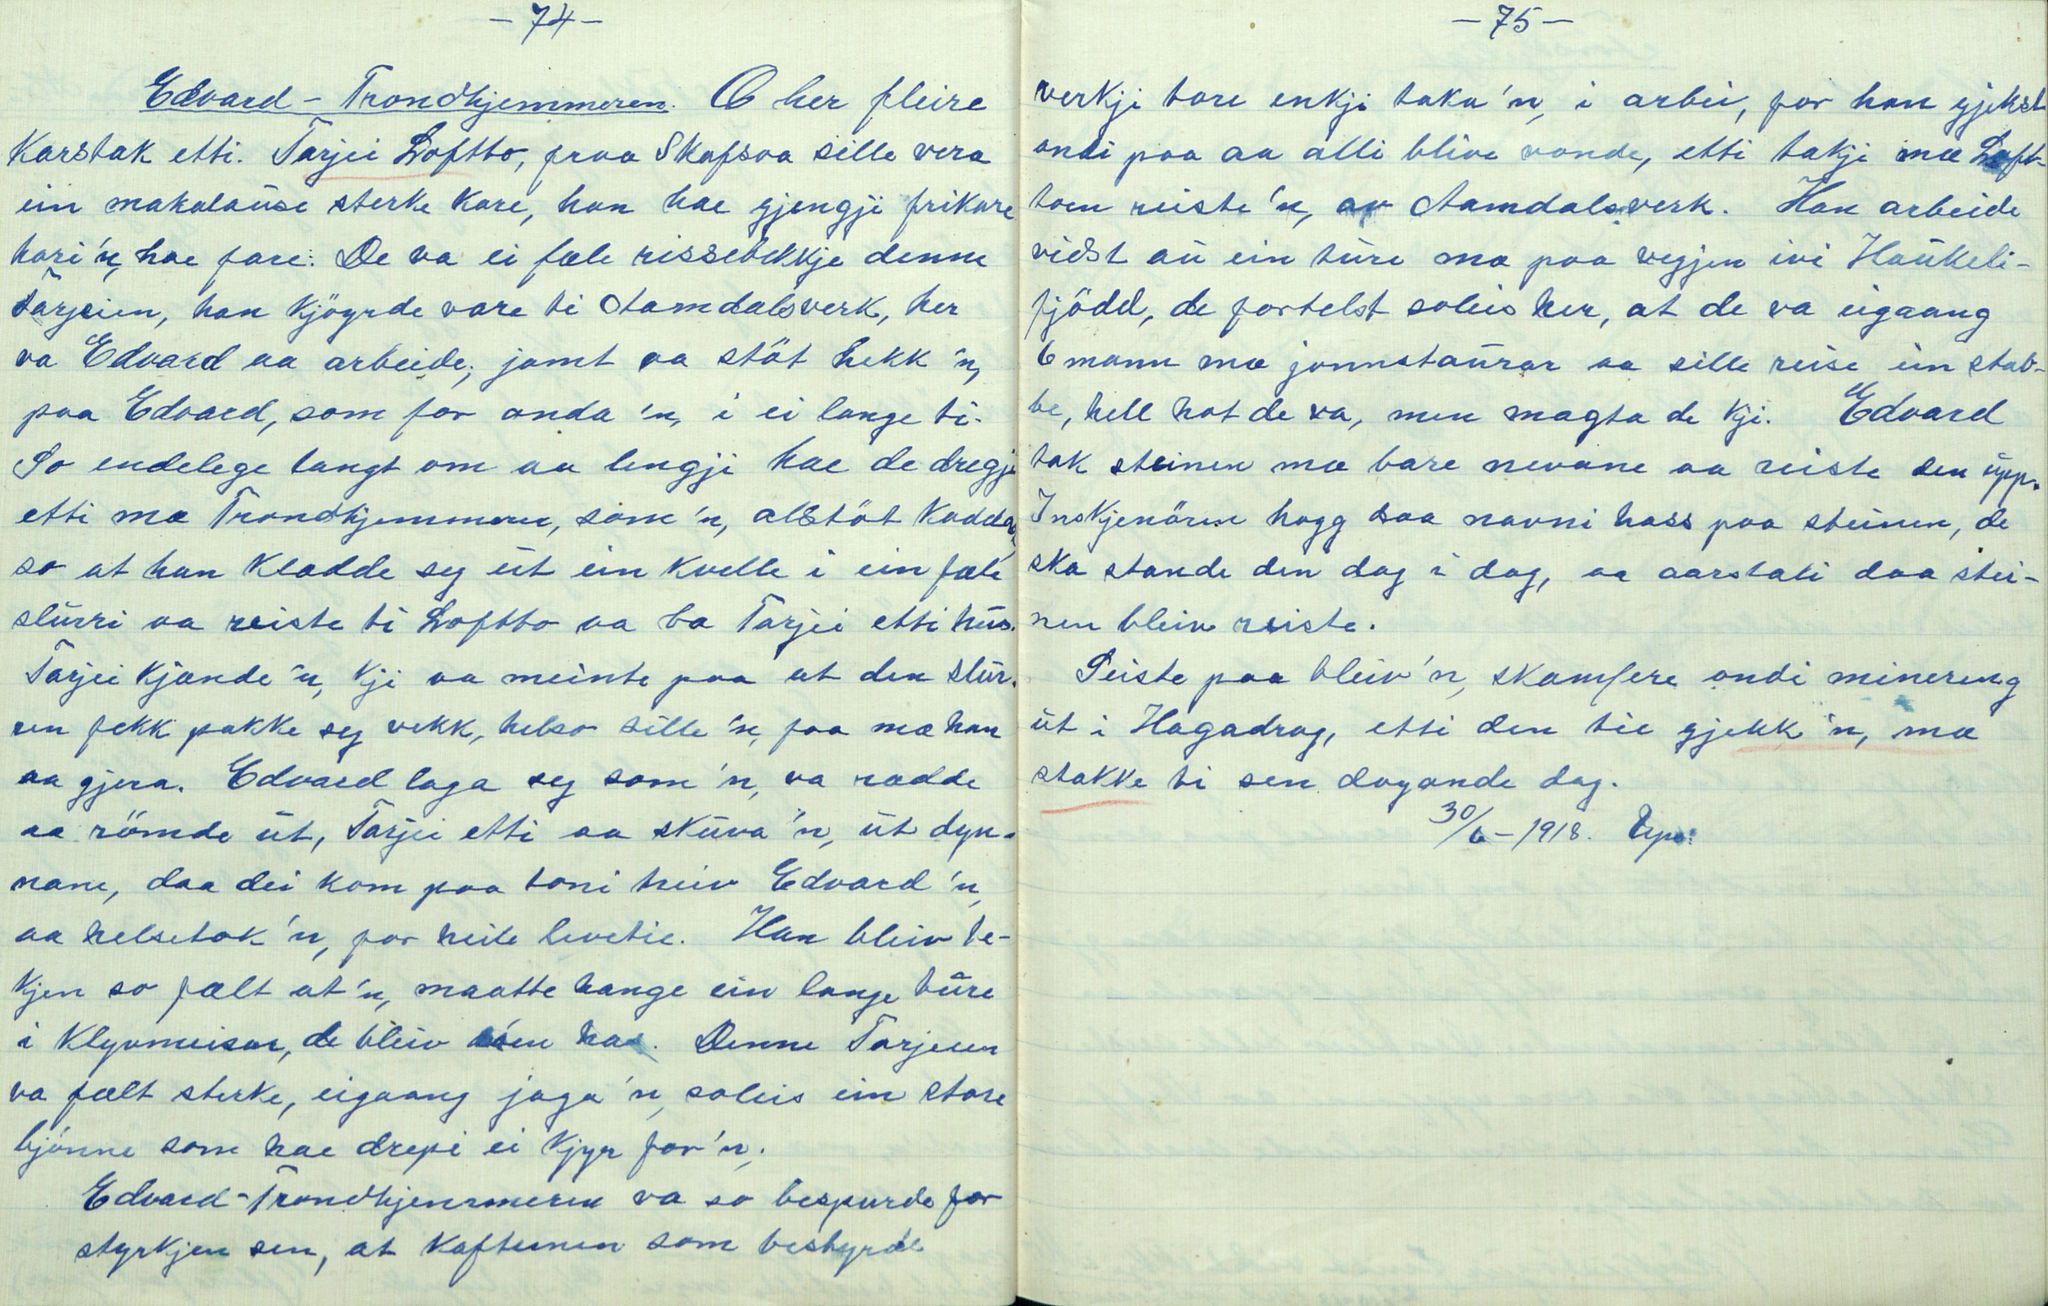 - 74 -
Edvard - Trondhjemmeren. Æ her fleire
karstak etti. Tarjei Loftto, fraa Skafsaa sille vera
ein makalause sterke kare, han hae gjengji frikare
hori'n, hae fare. De va ei fæle rissebikkje denne
Tarjeien, han kjöyrde vare ti Aamdalsverk, her
va Edvard aa arbeide, jamt va stöt hekk'n,
paa Edvard, som for anda'n, i ei lange ti.
So endelege langt om aa lengji hae de dregji
etti mæ Trondhjemmeren, som'n, alstöt kadda,
so at han klædde seg ut ein kvelle i ein fæle
slurri aa reiste ti Loftto aa ba Tarjei etti hus.
Tarjei kjænde'n, kji aa meinte paa at den slur-
ren fekk pakke seg vekk, helso sille'n, faa mæ han
aa gjera. Edvard laga seg som'n, va rædde
aa römde ut, Tarjei etti aa skuva'n, ut dyn-
nane, daa dei kom paa toni heiv Edvard'n,
aa helsetok'n, for heile levetie. Han bleiv te-
kjen so fælt at'n, maatte hange ein lange ture
i klyvmeisar, de bleiv  hae. Denne Tarjeien
va fælt sterke, eigaang jaga'n, soleis ein store
bjönne som hae drepi ei kjyr for'n,
Edvard-Trondhjemmeren va so bespurde for
styrkjen sen, at kafteinen som bestyrde
- 75 -
verkji tore enkji taka'n, i arbei, for han gjekst
ondi paa aa alli blive vonde, etti takji mæ Loft-
toen reiste'n, av Aamdalsverk. Han arbeide
vidst au ein ture mæ paa vegjen ivi Haukeli-
fjödd, de fortelst soleis her, at de va eigaang
6 mann mæ jonnstaurar aa sille reise ein stab-
be, hell hot de va, men magta de kji. Edvard
tok steinen mæ bare nevane aa reiste den upp.
Inskjenören hogg daa navni hass paa steinen, de
ska stande den dag i dag, aa aarstali daa stei-
nen bleiv reiste.
Seiste paa bleiv'n, skamfere ondi minering
ut i Hagadrag, etti den tie gjekk'n, mæ
stakke ti sen døyande dag.
30/6-1918.